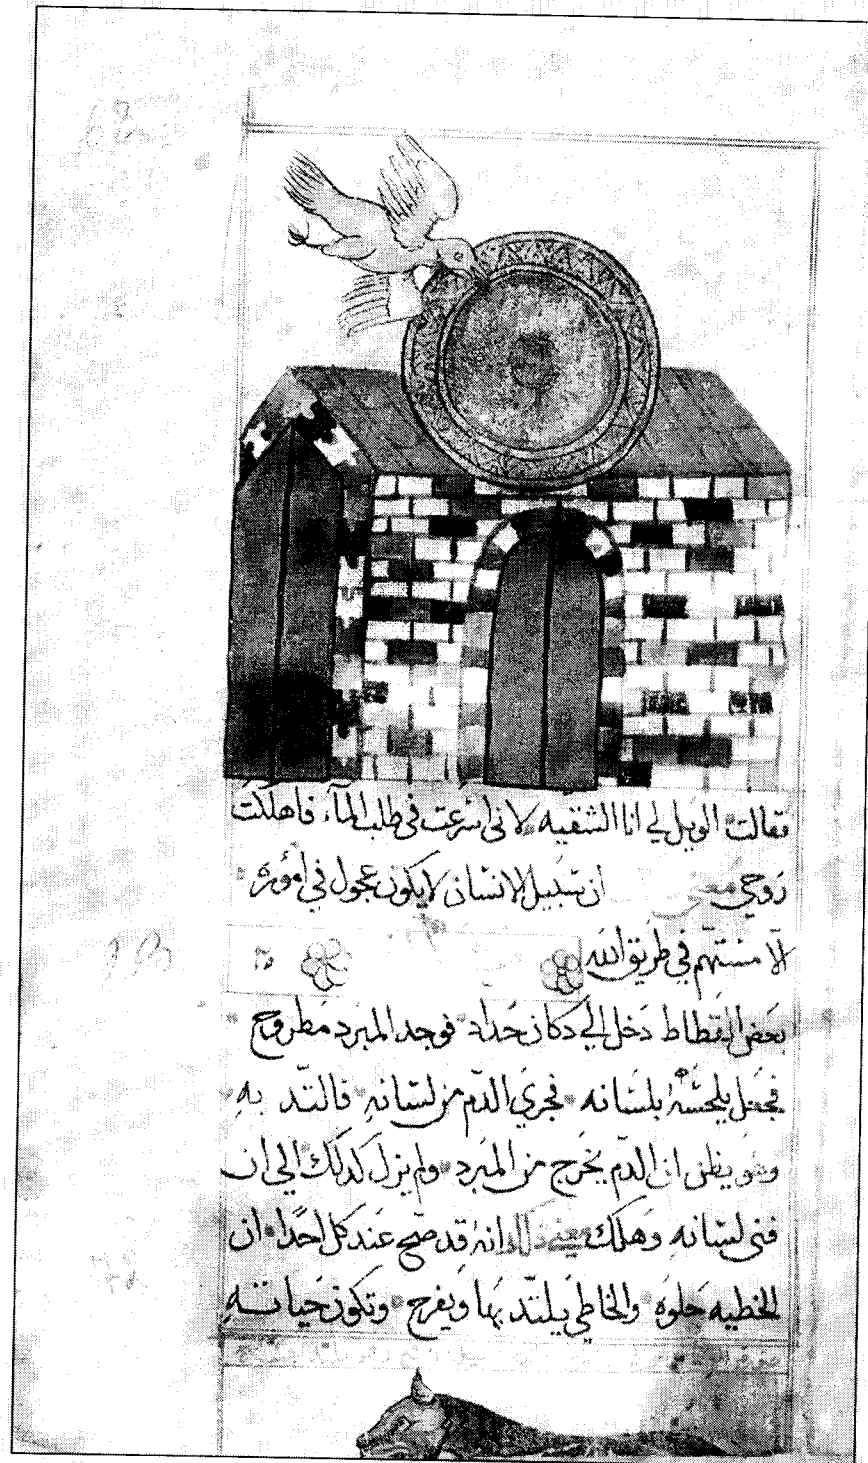 فقالت الويل لي انا الشقيه لاني اسرعت في طلب المآء فاهلكت
روحي معني ان سبيل الانسان لا يكون عجول في اموره
الا مستهم في طريق الله
بعض القطاط دخل الي دكان حداد فوجد المبرد مطروح
فجعل يلحسه بلسانه فجري الدم من لسانه فالتد به
وهو يظن ان الدم يخرج من المبرد ولم يزل كدلك الي ان
فني لسانه وهلك معني دلك انه قد صح عند كل احدا ان
الخطيه حلوه والخاطي يلتد بها ويفرح وتكون حياته